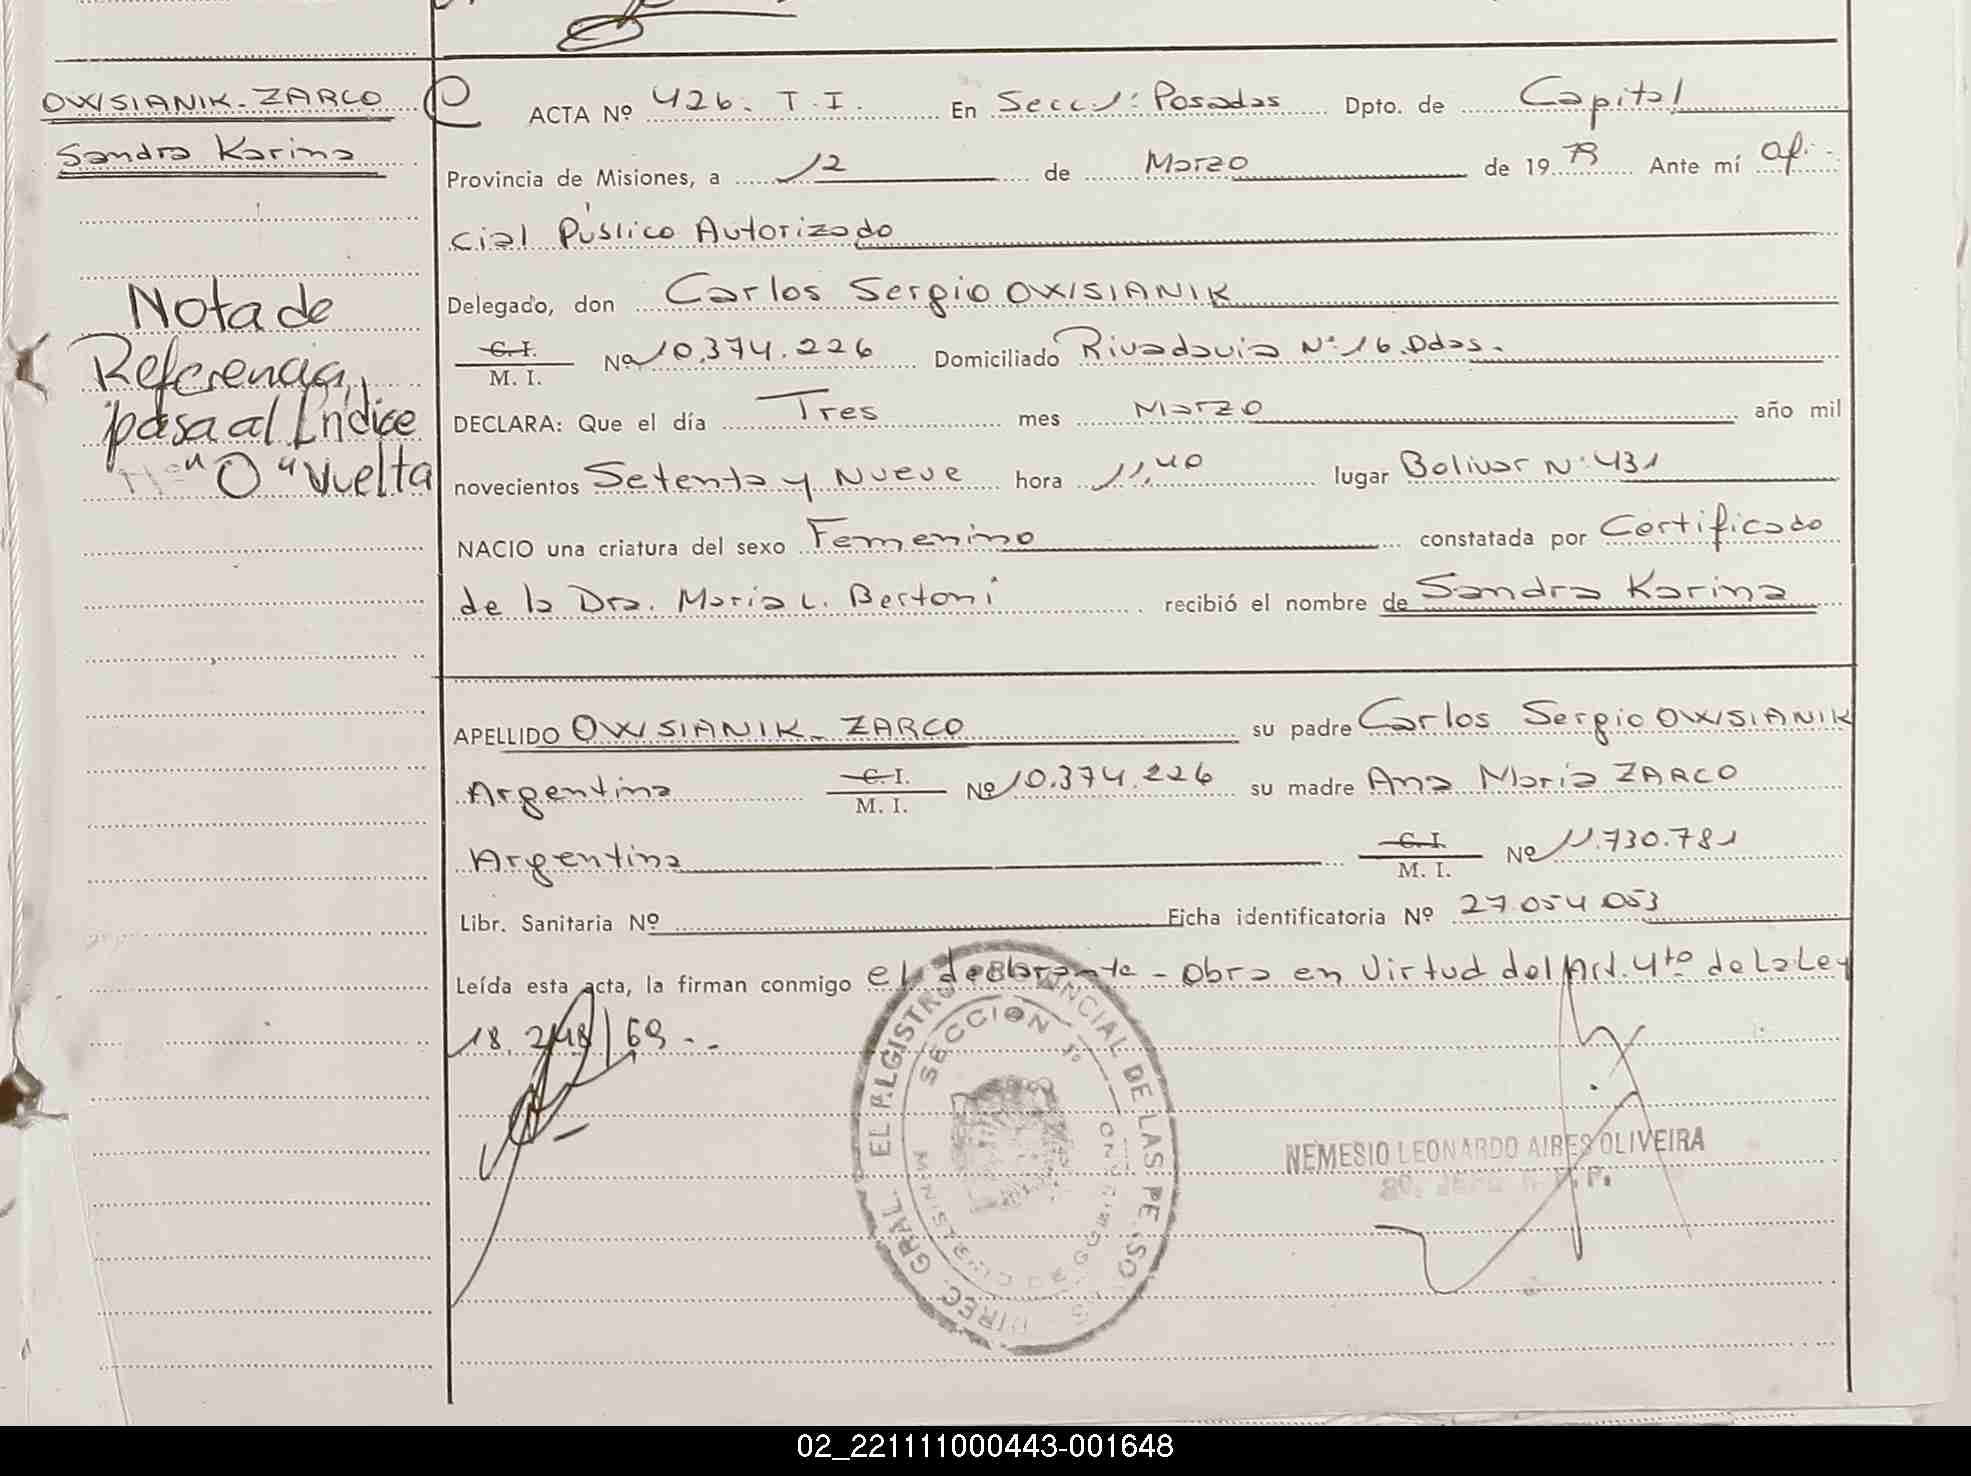 OWSIANIK-ZARCO
Sandra Karina
Nota de
Referencia,
pasa al Indice
"O" vuelta
ACTA Nº 426. T.I. En Secc 1ª: Posadas Dpto. de Capital
Provincia de Misiones, a 12 de Marzo de 1979 Ante mí ofi-
cial Público Autorizado
Delegado, don Carlos Sergio OWSIANIK
C. I.
M. I. Nº 10.374.226 Domiciliado Rivadavia Nº 16. Pdas.
DECLARA: Que el día Tres mes Marzo año mil
novecientos Setenta y Nueve hora 11,40 lugar Bolivar Nº 431
NACIO una criatura del sexo Femenino constatada por Certificado
de la Dra. Maria L. Bertoni recibió el nombre de Sandra Karina
APELLIDO OWSIANIK-ZARCO su padre Carlos Sergio OWSIANIK
Argentina C. I.
M. I. Nº 10.374.226 su madre Ana Maria ZARCO
Argentina C. I.
M. I. Nº 11.730.781
Libr. Sanitaria Nº Ficha identificatoria Nº 27.054.053
Leída esta acta, la firman conmigo el declarante - Obra en Virtud del Art. 4to de la Ley
18.248/69.-
DIREC. GRAL. EL REGISTRO PROVINCIAL DE LAS PERSONAS
SECCION 1º
NEMESIO LEONARDO AIRES OLIVEIRA
02_221111000443-001648